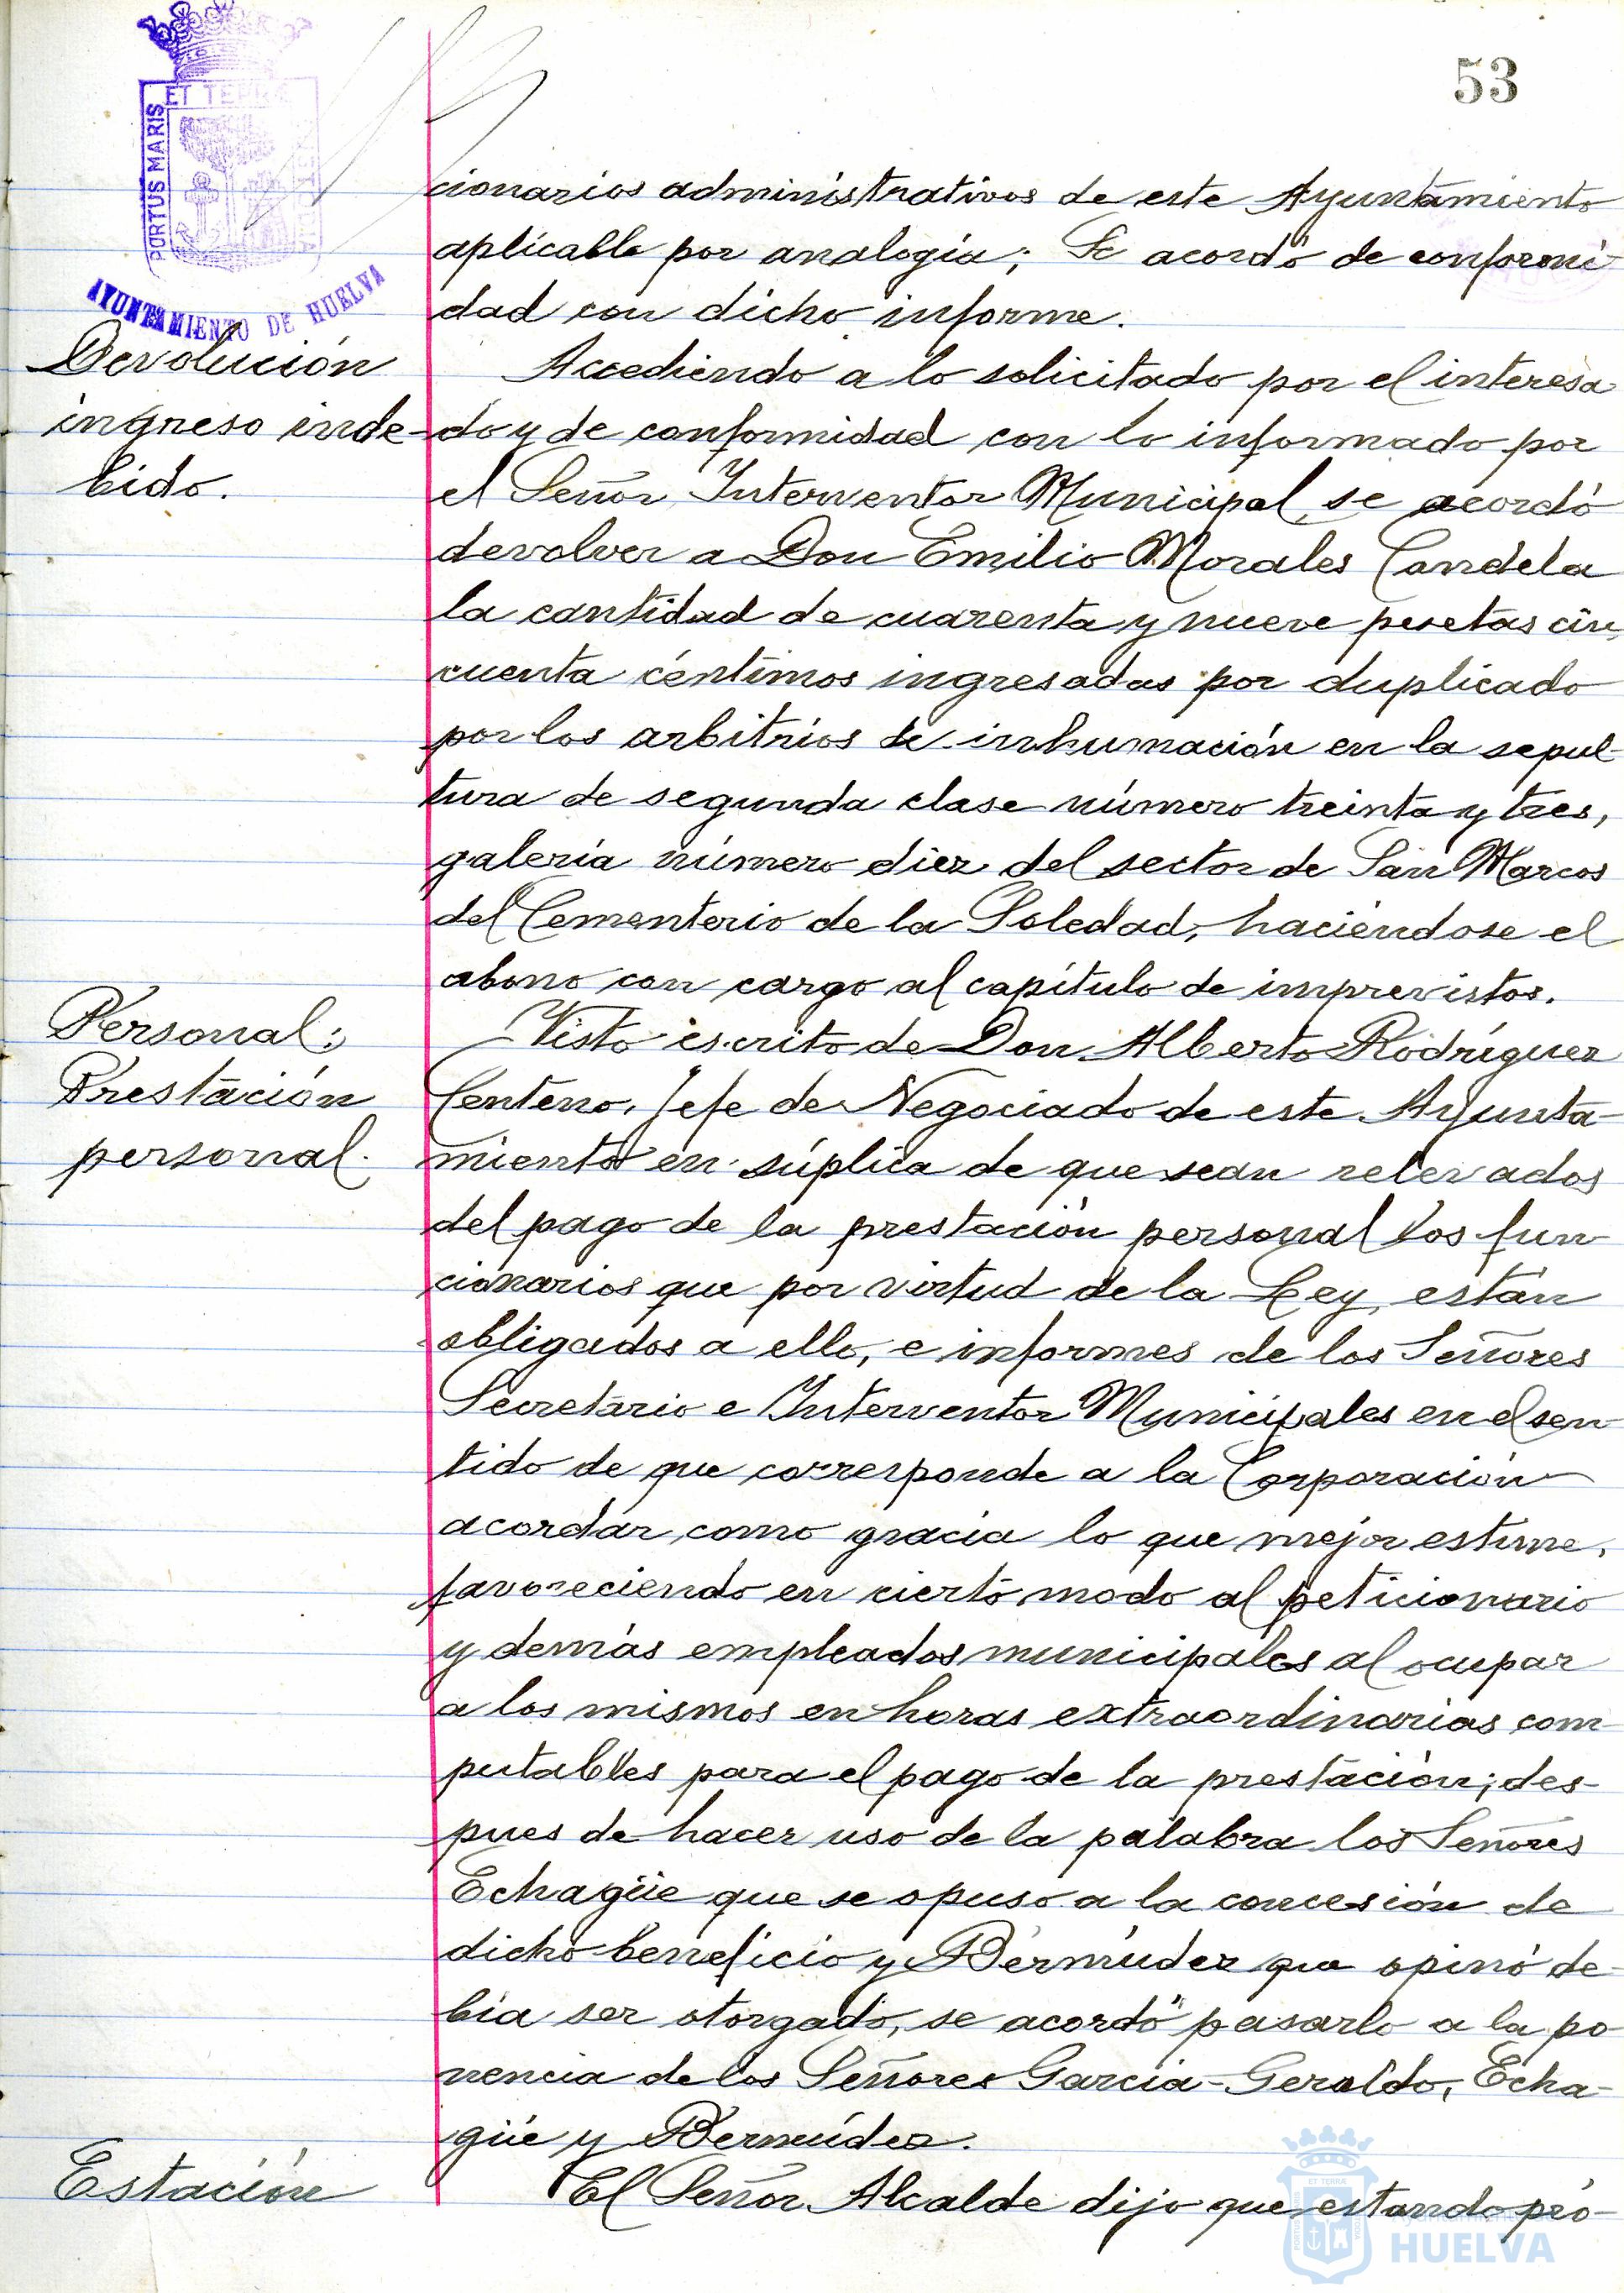 53
ET TERRÆ
PORTUS MARIS
AYUNTAMIENTO DE HUELVA
cionarios administrativos de este Ayuntamiento
aplicable por analogía; Se acordó de conformi-
dad con dicho informe.
Devolución
ingreso inde-
bido.
Accediendo a lo solicitado por el interesa
do y de conformidad con lo informado por
el Señor Interventor Municipal, se acordó
devolver a Don Emilio Morales Candela
la cantidad de cuarenta y nueve pesetas cin
cuenta céntimos ingresadas por duplicado
por los arbitrios de inhumación en la sepul-
tura de segunda clase número treinta y tres,
galería número diez del sector de San Marcos
del Cementerio de la Soledad, haciéndose el
abono con cargo al capítulo de imprevistos.
Personal:
Prestación
personal.
Visto escrito de Don Alberto Rodríguez
Centeno, Jefe de Negociado de este Ayunta-
miento en súplica de que sean relevados
del pago de la prestación personal los fun-
cionarios que por virtud de la Ley, están
obligados a ello, e informes de los Señores
Secretario e Interventor Municipales en el sen-
tido de que corresponde a la Corporación
acordar como gracia lo que mejor estime,
favoreciendo en cierto modo al peticionario
y demás empleados municipales al ocupar
a los mismos en horas extraordinarias com-
putables para el pago de la prestación; des-
pues de hacer uso de la palabra los Señores
Echagüe que se opuso a la concesión de
dicho beneficio y Bermúdez que opinó de-
bía ser otorgado, se acordó pasarlo a la po-
nencia de los Señores García-Geraldo, Echa-
güe y Bermúdez.
Estación
El Señor Alcalde dijo que estando pró-
HUELVA